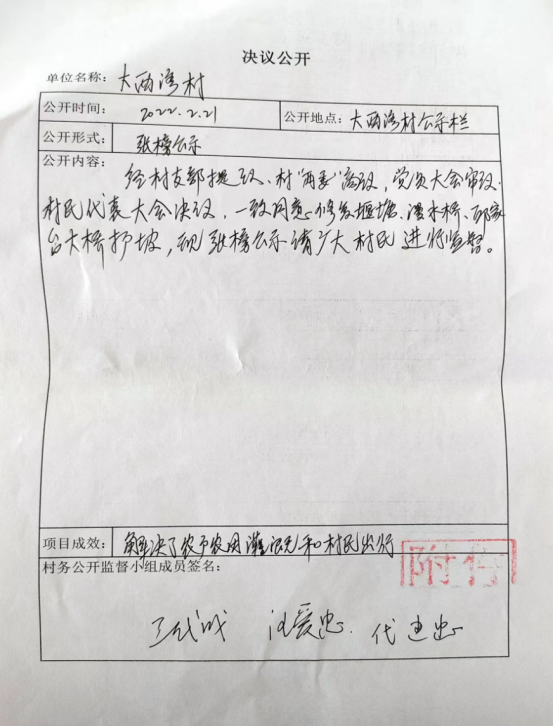 决议公开
单位名称：大两湾村
公开时间：2022.2.21 公开地点：大两湾村公示栏
公开形式：张榜公示
公开内容：
经村支部提议、村“两委”商议，党员大会审议、
村民代表大会决议，一致同意修复堰塘、漫水桥、邱家
台大桥护坡，现张榜公示请广大村民进行监督。
项目成效：解决了农户农田灌溉和村民出行
村务公开监督小组成员签名：
附件